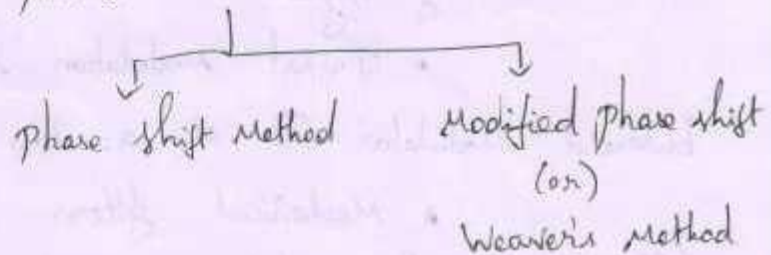 Phase shift Method
Modified phase shift
(or)
Weaver's Method